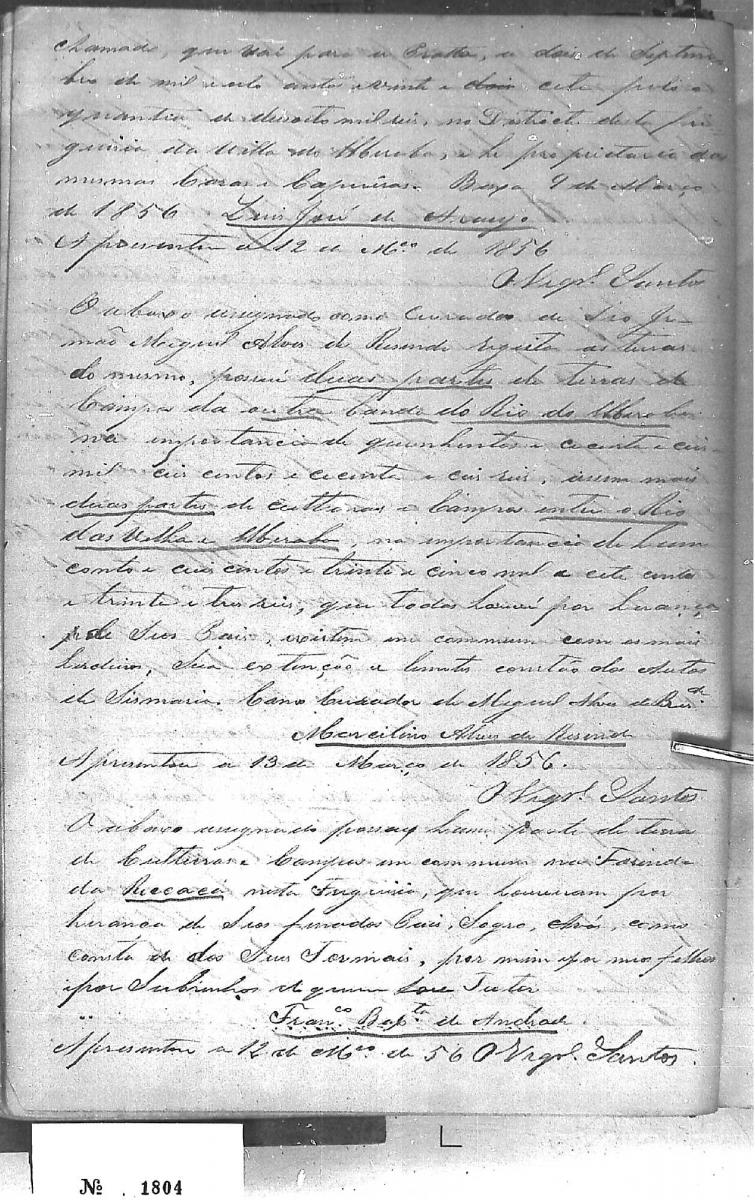 chamado, que vai para a Pratta, a dois de Septem
bro de mil e oito centos e vinte e dois cete pela
quantia de desoito mil reis, no Districto desta fre
guisia da Villa do Uberaba, e he proprietario das
mesmas Casas e Capueiras. Bexa 9 de Março
de 1856 Luis José de Araujo
Apresentou a 12 de M.ço de 1856
O Vigr.º Santos
O abaxo assignado como Curador de Seo Ir
mão Miguel Alves de Resende registra as terras
do mesmo, possui duas partes de terras de
Campos da outra Banda do Rio do Uberaba
na importancia de quinhentos e cecenta e ceis
mil ceis centos e cecenta e ceis reis, assim mais
duas partes de culturas e Campos entre o Rio
das Velhas e Uberaba, na importancia de hum
conto e ceis centos e trinta e cinco mil e cete centos
e trinta e tres reis, que todas houve por herança
de Seos Pais, existem em commum com os mais
herdeiros, Sua extenção e lemites constão dos Autos
de Sismaria. Como Curador de Miguel Alves de Res.de
Marcilino Alves de Resende
Apresentou a 13 de Março de 1856.
O Vigr.º Santos
O abaxo assignado possue huma parte de terra
de Culturas e Campos em commum na Fazenda
da nesta Freguisia, que houveram por
herança de Seos finados Pais, Sogro, Avós, como
consta de dos Seus Formais, por mim e por meos filhos
e por Subrinhos de quem sou Tutor
Fran.co Bap.ta de Andrade
Apresentou a 12 de M.ço de 56 O Vigr.º Santos.
Nº 1804